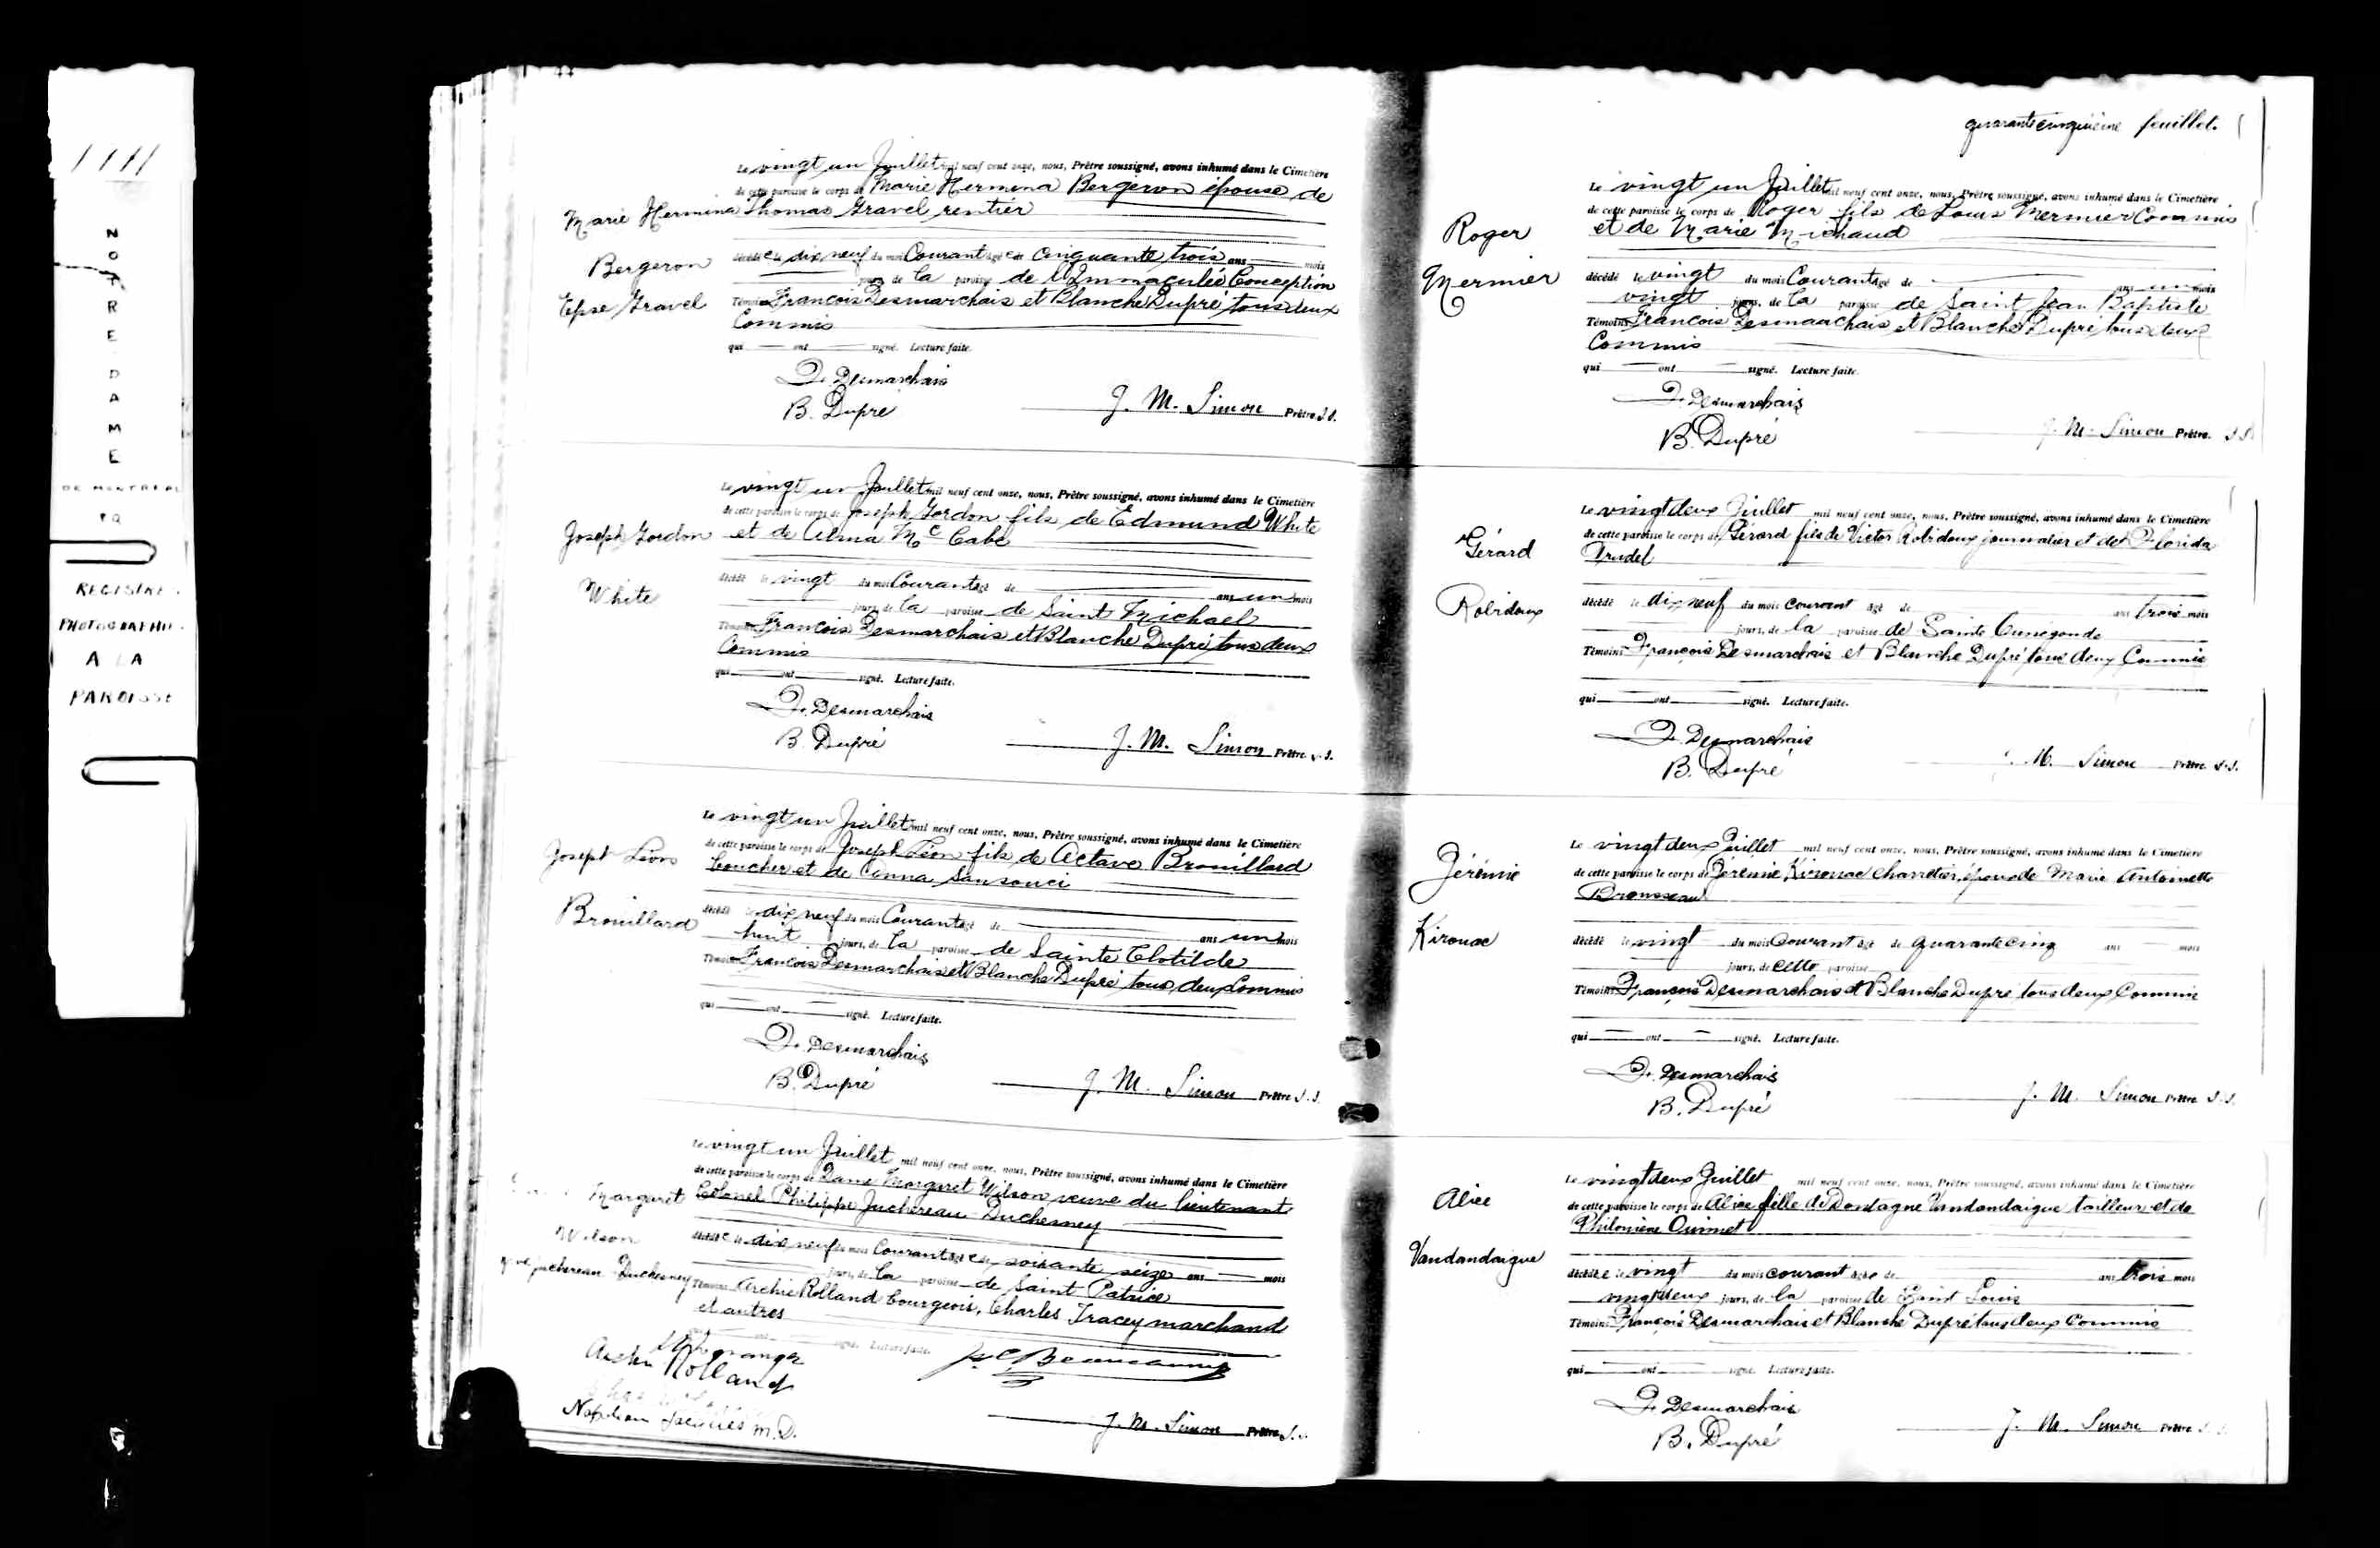 1911
NOTRE DAME
DE MONTREAL
REGISTRE
PHOTOGRAPHIE
A LA
PAROISSE
Marie Hermina
Bergeron
Epse Gravel
Le vingt un Juillet mil neuf cent onze, nous, Prêtre soussigné, avons inhumé dans le Cimetière
de cette paroisse le corps de Marie Hermina Bergeron épouse de
Thomas Gravel rentier
décédée le dix neuf du mois Courant agée de cinquante trois ans mois
jours, de la paroisse de l'Immaculée Conception
Témoins François Desmarchais et Blanche Dupré tous deux
Commis
qui ont signé. Lecture faite.
F. Desmarchais
B. Dupré
J. M. Simon Prêtre S.S.
Joseph Gordon
White
Le vingt un Juillet mil neuf cent onze, nous, Prêtre soussigné, avons inhumé dans le Cimetière
de cette paroisse le corps de Joseph Gordon fils de Edmund White
et de Alma Mc Cabe
décédé le vingt du mois Courant agé de ans un mois
jours, de la paroisse de Saint Michael
Témoins François Desmarchais et Blanche Dupré tous deux
Commis
qui ont signé. Lecture faite.
F. Desmarchais
B. Dupré
J. M. Simon Prêtre S.S.
Joseph Léon
Brouillard
Le vingt un Juillet mil neuf cent onze, nous, Prêtre soussigné, avons inhumé dans le Cimetière
de cette paroisse le corps de Joseph Léon fils de Octave Brouillard
boucher et de Anna Sansouci
décédé le dix neuf du mois Courant agé de ans un mois
huit jours, de la paroisse de Sainte Clotilde
Témoins François Desmarchais et Blanche Dupré tous deux Commis
qui ont signé. Lecture faite.
F. Desmarchais
B. Dupré
J. M. Simon Prêtre S.S.
Margaret
Wilson
Juchereau Duchesnay
Le vingt un Juillet mil neuf cent onze, nous, Prêtre soussigné, avons inhumé dans le Cimetière
de cette paroisse le corps de Dame Margaret Wilson veuve du lieutenant
Colonel Philippe Juchereau Duchesnay
décédée le dix neuf du mois Courant agée de soixante seize ans mois
jours, de la paroisse de Saint Patrice
Témoins Archie Rolland bourgeois, Charles Tracey marchand
et autres
signé. Lecture faite.
Rolland
Napoléon Jacques M.D.
J. M. Simon Prêtre S.S.
quarante cinquième feuillet.
Roger
Mermier
Le vingt un Juillet mil neuf cent onze, nous, Prêtre soussigné, avons inhumé dans le Cimetière
de cette paroisse le corps de Roger fils de Louis Mermier Commis
et de Marie Michaud
décédé le vingt du mois Courant agé de ans un mois
vingt jours, de la paroisse de Saint Jean Baptiste
Témoins François Desmarchais et Blanche Dupré tous deux
Commis
qui ont signé. Lecture faite.
F. Desmarchais
B. Dupré
J. M. Simon Prêtre. S.S.
Gérard
Robidoux
Le vingt deux Juillet mil neuf cent onze, nous, Prêtre soussigné, avons inhumé dans le Cimetière
de cette paroisse le corps de Gérard fils de Victor Robidoux journalier et de Florida
Trudel
décédé le dix neuf du mois courant agé de ans trois mois
jours, de la paroisse de Sainte Cunégonde
Témoins François Desmarchais et Blanche Dupré tous deux Commis
qui ont signé. Lecture faite.
F. Desmarchais
B. Dupré
J. M. Simon Prêtre S.S.
Jérémie
Kirouac
Le vingt deux Juillet mil neuf cent onze, nous, Prêtre soussigné, avons inhumé dans le Cimetière
de cette paroisse le corps de Jérémie Kirouac charretier, époux de Marie Antoinette
Brousseau
décédé le vingt du mois Courant agé de quarante cinq ans mois
jours, de cette paroisse
Témoins François Desmarchais et Blanche Dupré tous deux Commis
qui ont signé. Lecture faite.
F. Desmarchais
B. Dupré
J. M. Simon Prêtre S.S.
Alice
Vandandaigue
Le vingt deux Juillet mil neuf cent onze, nous, Prêtre soussigné, avons inhumé dans le Cimetière
de cette paroisse le corps de Alice fille de Dontagne Vandandaigue tailleur et de
Philomène Ouimet
décédée le vingt du mois courant agée de ans trois mois
vingt deux jours, de la paroisse de Saint Louis
Témoins François Desmarchais et Blanche Dupré tous deux Commis
qui ont signé. Lecture faite.
F. Desmarchais
B. Dupré
J. M. Simon Prêtre S.S.